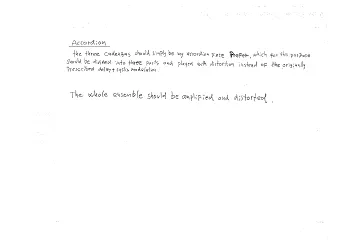 Accordion
The three cadenzas should simply be my accordion piece , which for this purpose
should be divided into three parts and played with distortion instead of the originally
prescribed delay + cyclic modulation.
The whole ensemble should be amplified and distorted.